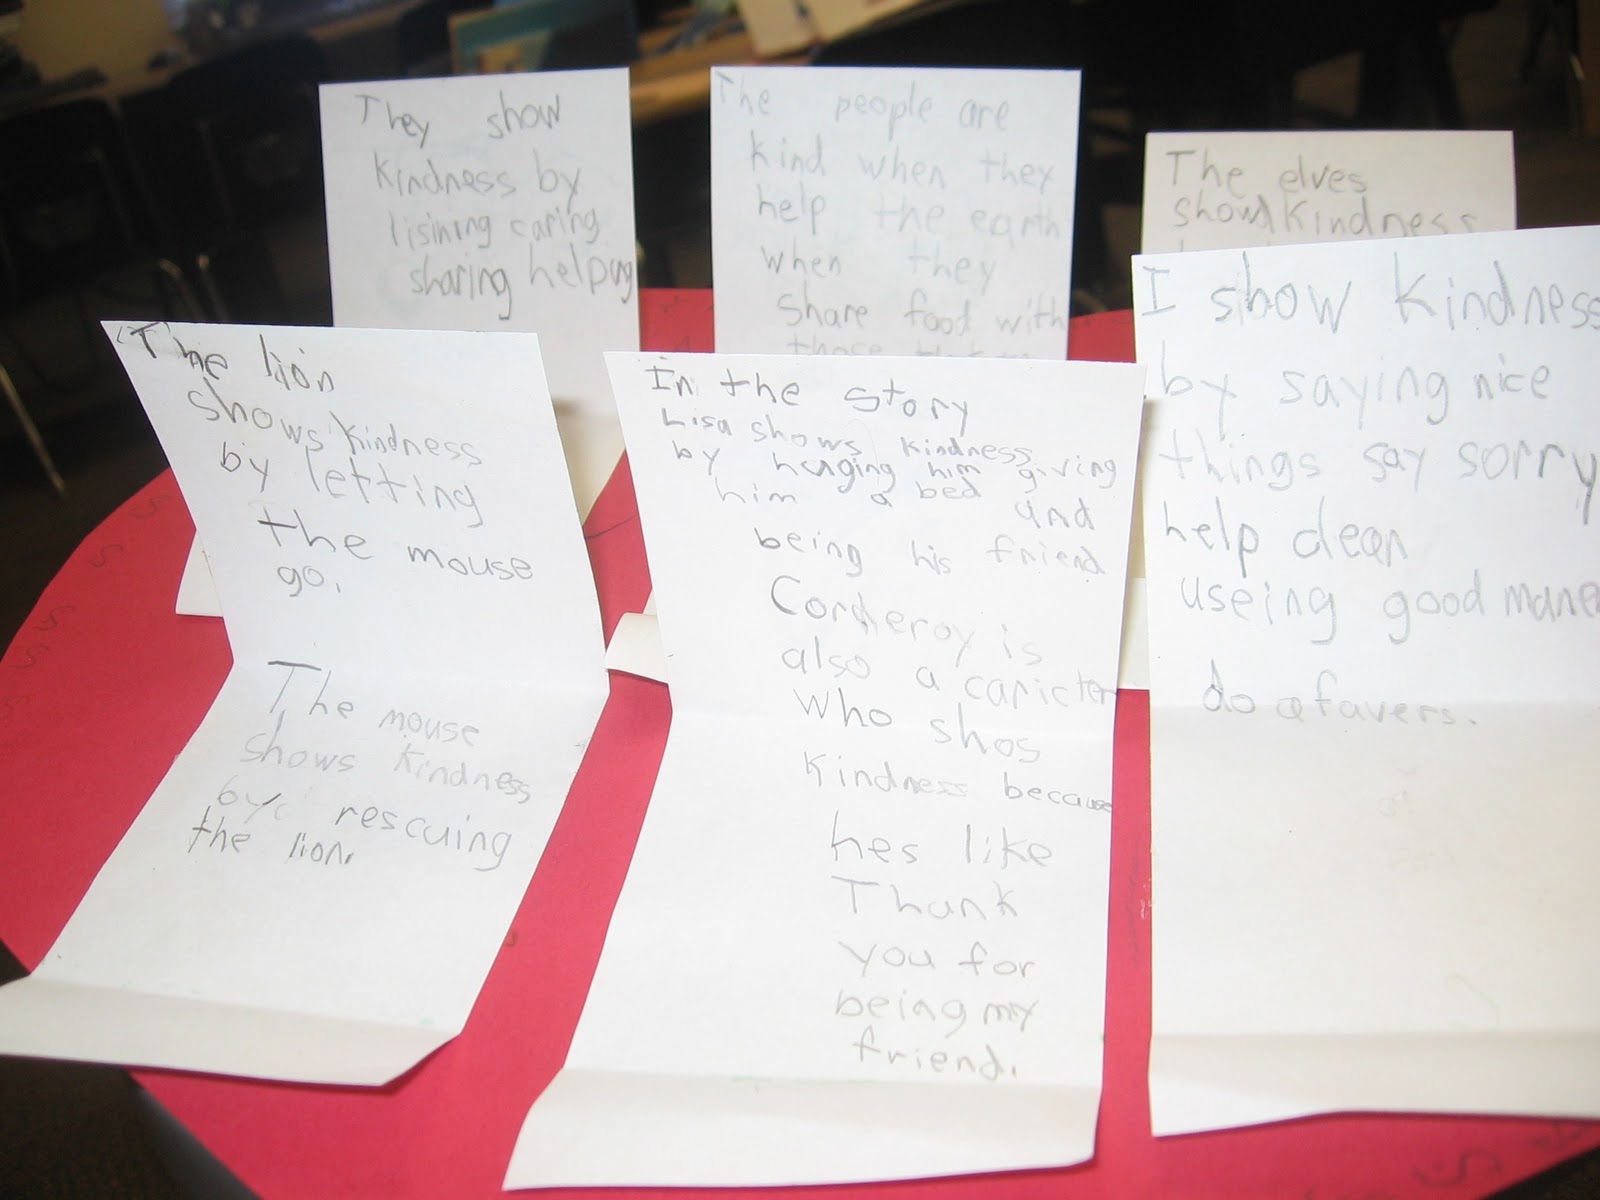 They show
kindness by
lisining caring
sharing helping
The people are
kind when they
help the earth
when they
share food with
those
The elves
show kindness
The lion
shows kindness
by letting
the mouse
go.
The mouse
shows kindness
by rescuing
the lion.
In the story
Lisa shows kindness
by huging him giving
him a bed and
being his friend
Corderoy is
also a caricter
who shos
kindness because
hes like
Thank
you for
being my
friend.
I show kindness
by saying nice
things say sorry
help clean
useing good
do a favers.